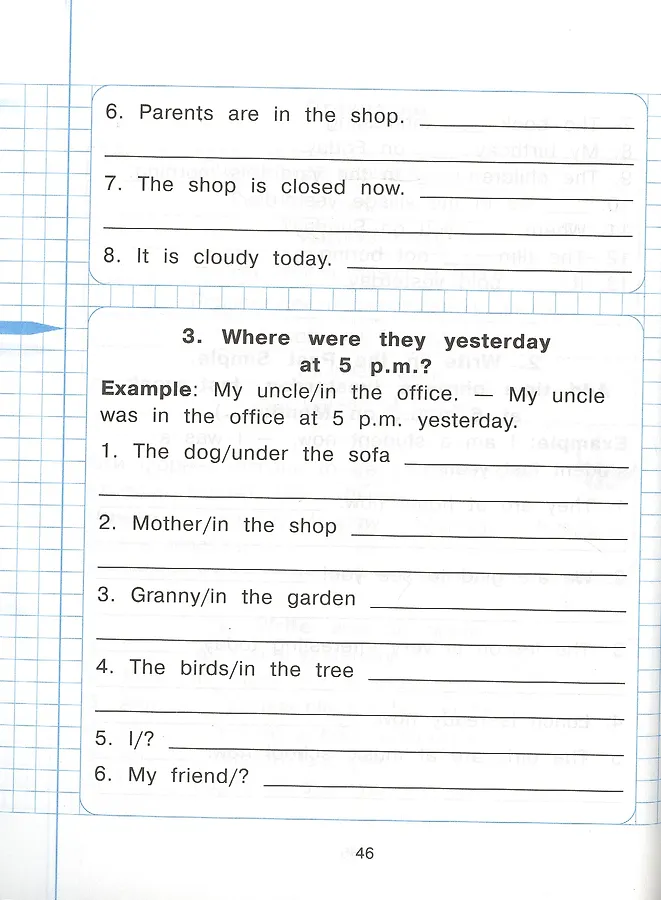 6. Parents are in the shop.
7. The shop is closed now.
8. It is cloudy today.
3. Where were they yesterday
at 5 p.m.?
Example: My uncle/in the office. — My uncle
was in the office at 5 p.m. yesterday.
1. The dog/under the sofa
2. Mother/in the shop
3. Granny/in the garden
4. The birds/in the tree
5. I/?
6. My friend/?
46